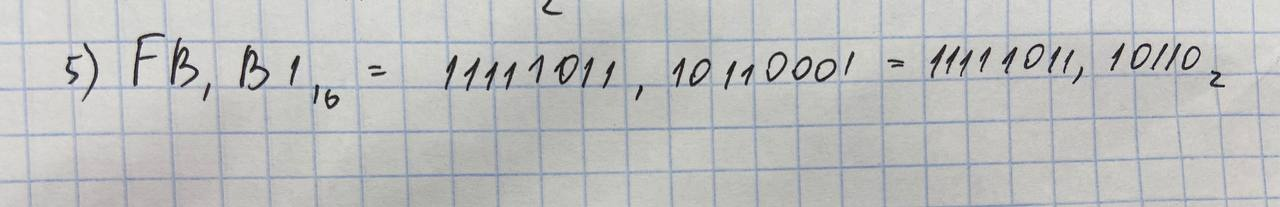 5) FB, B1₁₆ = 11111011, 10110001 = 11111011, 10110₂